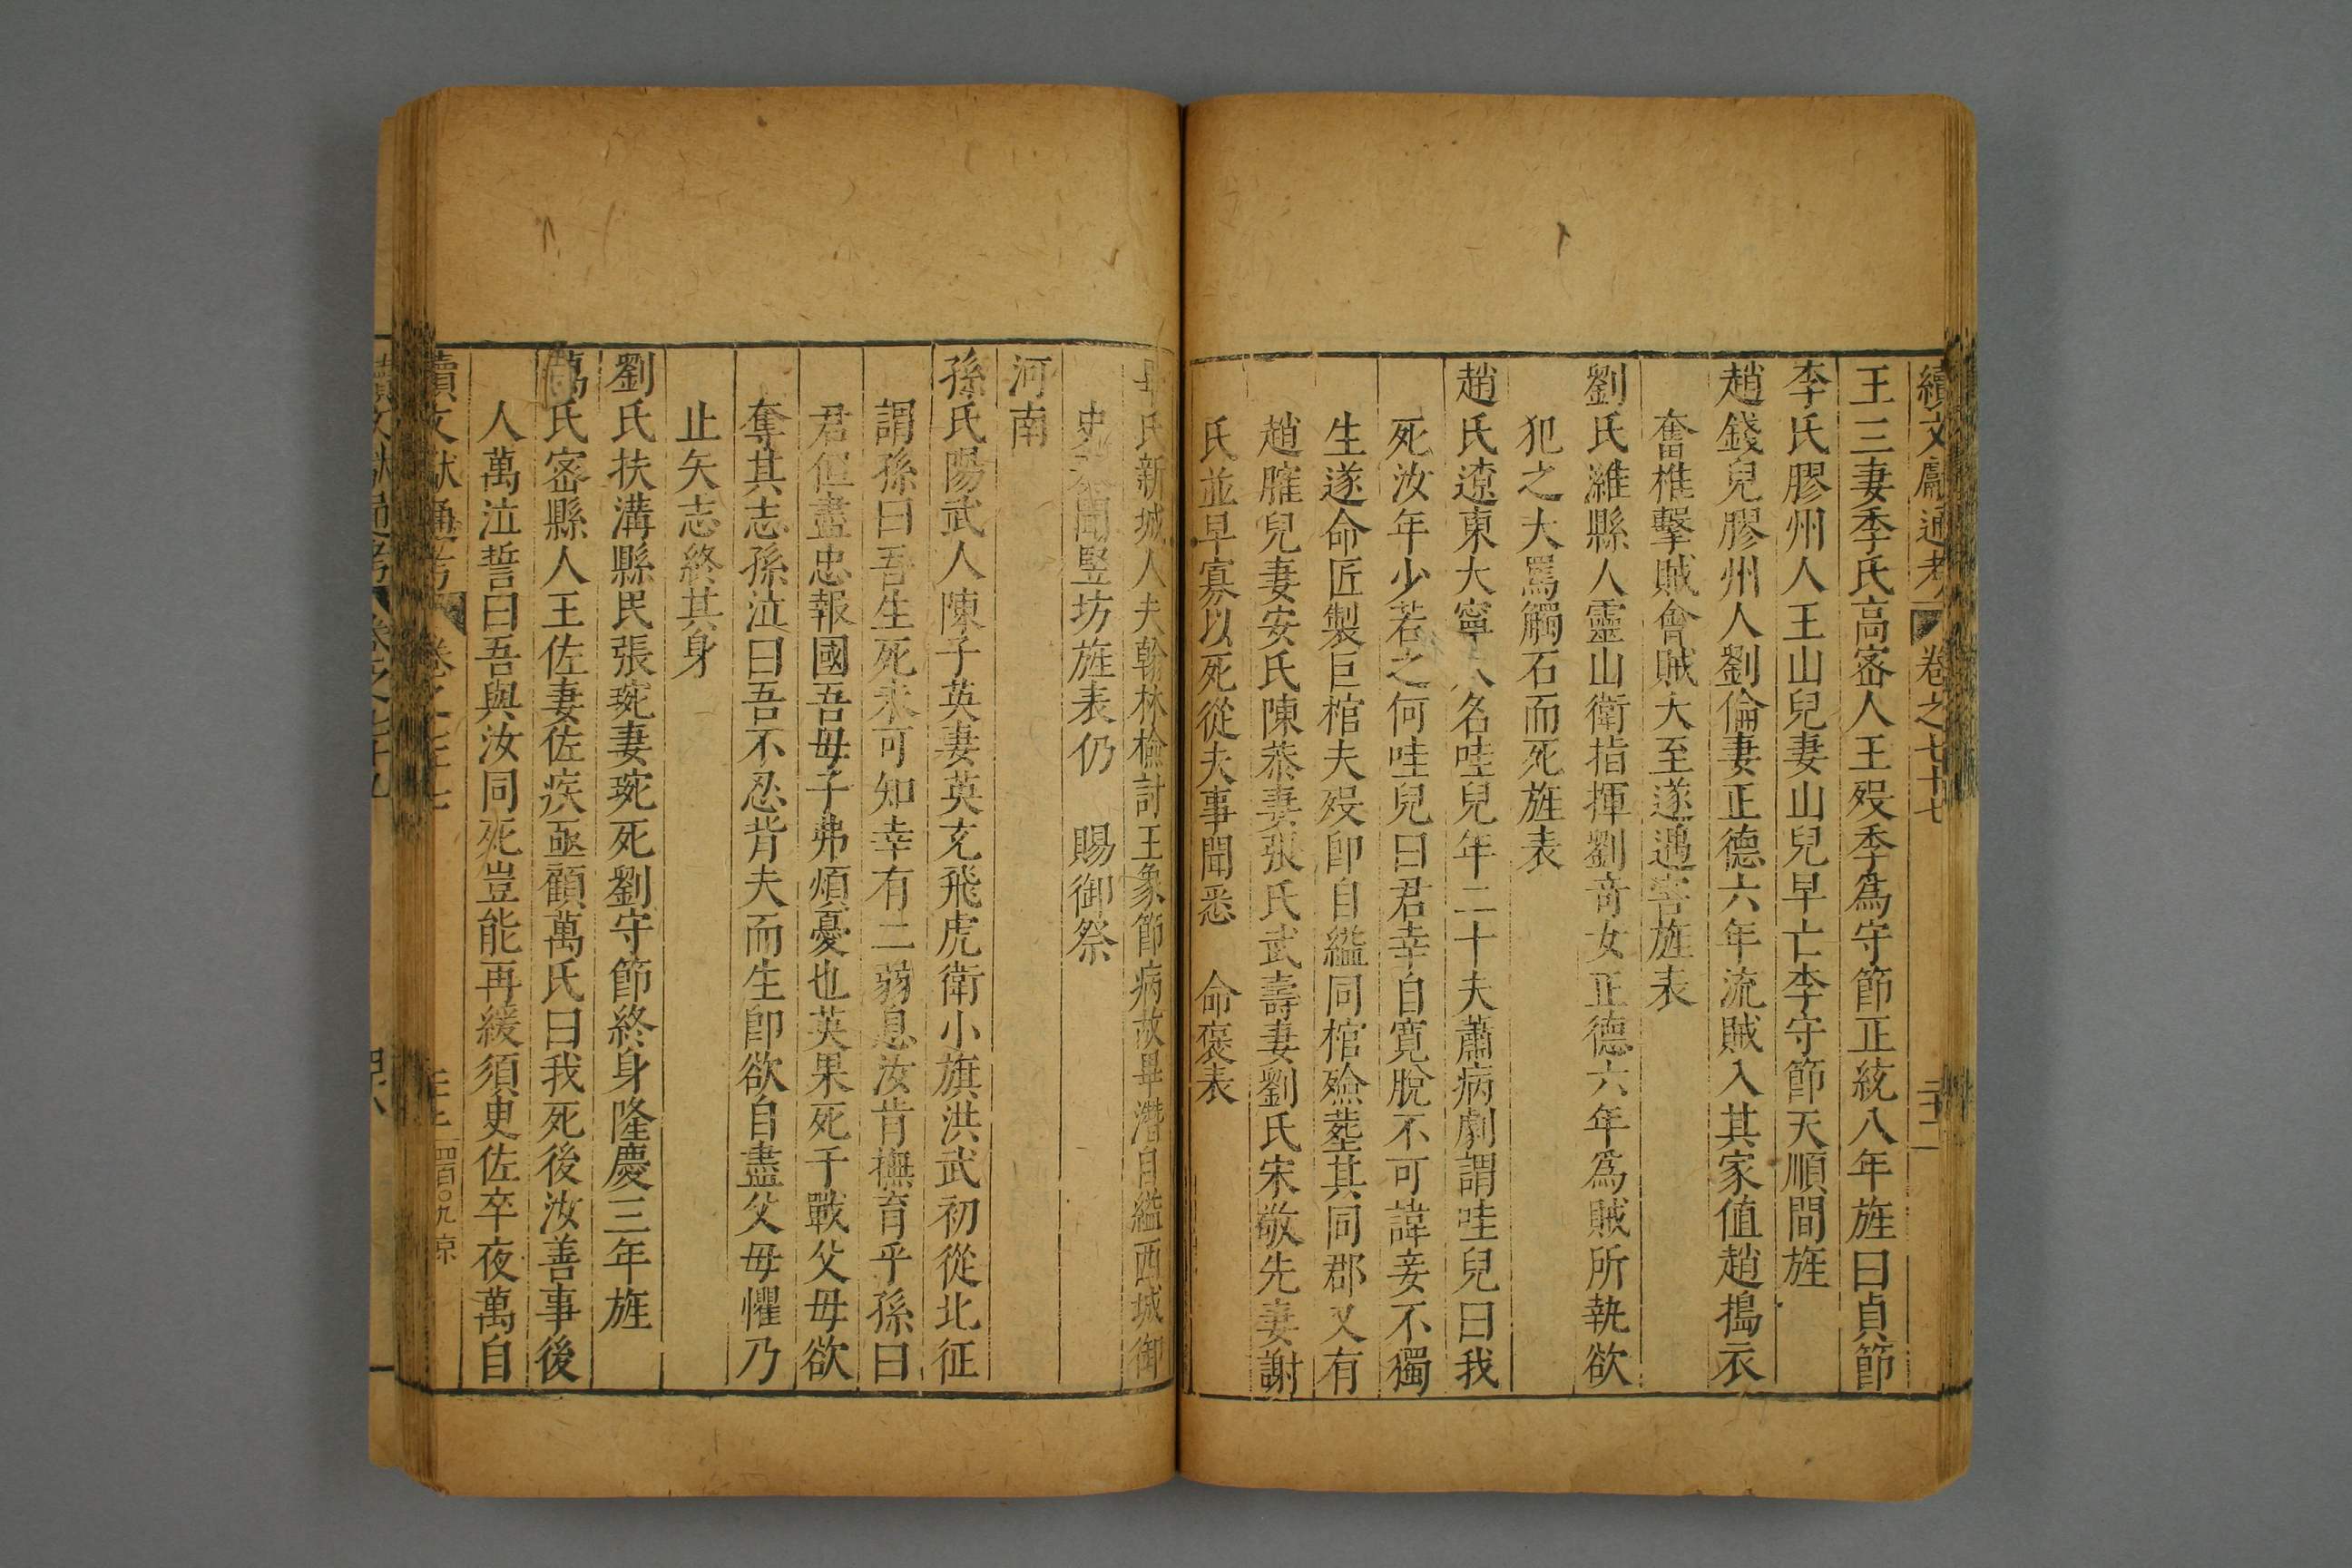 續文獻通考 卷之七十七 三十二
王三妻季氏高密人王歿季爲守節正統八年旌曰貞節
李氏膠州人王山兒妻山兒早亡李守節天順間旌
趙錢兒膠州人劉倫妻正德六年流賊入其家值趙搗衣
奮椎擊賊會賊大至遂遇害旌表
劉氏濰縣人靈山衛指揮劉竒女正德六年爲賊所執欲
犯之大罵觸石而死旌表
趙氏遼東大寧人名哇兒年二十夫蕭病劇謂哇兒曰我
死汝年少若之何哇兒曰君幸自寬脫不可諱妾不獨
生遂命匠製巨棺夫歿卽自縊同棺殮塟其同郡又有
趙膗兒妻安氏陳恭妻張氏武壽妻劉氏宋敬先妻謝
氏並早寡以死從夫事聞悉 命褒表
畢氏新城人夫翰林檢討王象節病故畢潛自縊西城御
史 聞竪坊旌表仍 賜御祭
河南
孫氏陽武人陳子英妻英充飛虎衛小旗洪武初從北征
謂孫曰吾生死未可知幸有二弱息汝肯撫育乎孫曰
君但盡忠報國吾毋子弗煩憂也英果死于戰父母欲
奪其志孫泣曰吾不忍背夫而生卽欲自盡父毋懼乃
止矢志終其身
劉氏扶溝縣民張琬妻琬死劉守節終身隆慶三年旌
萬氏密縣人王佐妻佐疾亟顧萬氏曰我死後汝善事後
人萬泣誓曰吾與汝同死豈能再緩須臾佐卒夜萬自
續文獻通考 卷之七十七
續文獻通考 卷之七十九 四八